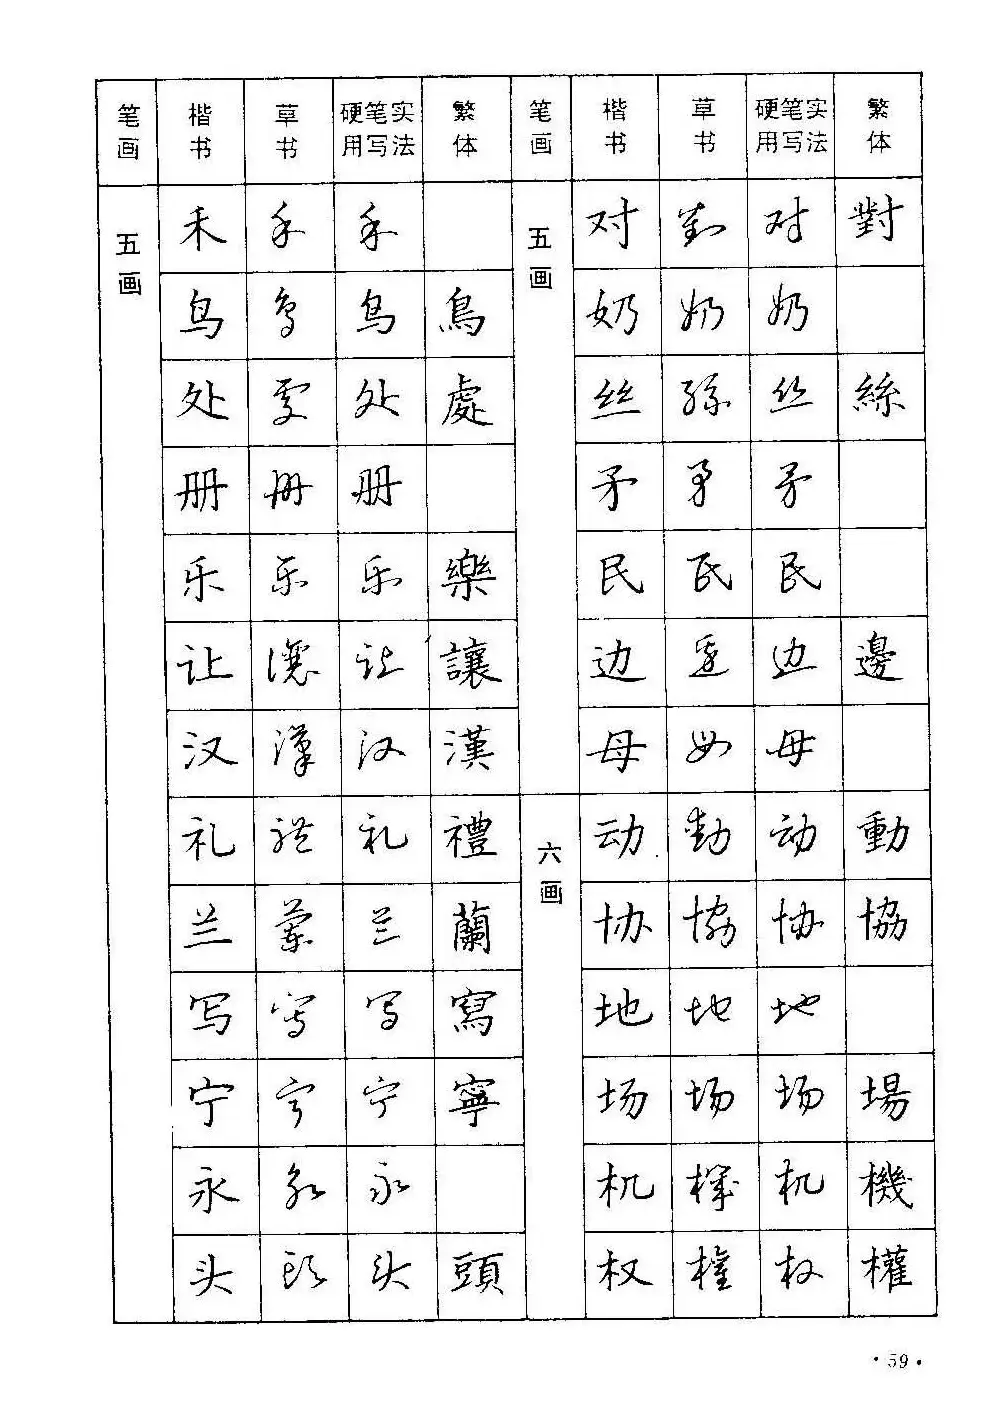 笔画 楷书 草书 硬笔实用写法 繁体 笔画 楷书 草书 硬笔实用写法 繁体
五画 禾 禾 禾 五画 对 對 对 對
鸟 鳥 鸟 鳥 奶 奶 奶
处 處 处 處 丝 絲 丝 絲
册 册 册 矛 矛 矛
乐 乐 乐 樂 民 民 民
让 讓 让 讓 边 邊 边 邊
汉 漢 汉 漢 母 母 母
礼 禮 礼 禮 六画 动 動 动 動
兰 蘭 兰 蘭 协 協 协 協
写 寫 写 寫 地 地 地
宁 宁 宁 寧 场 场 场 場
永 永 永 机 機 机 機
头 頭 头 頭 权 權 权 權
·59·